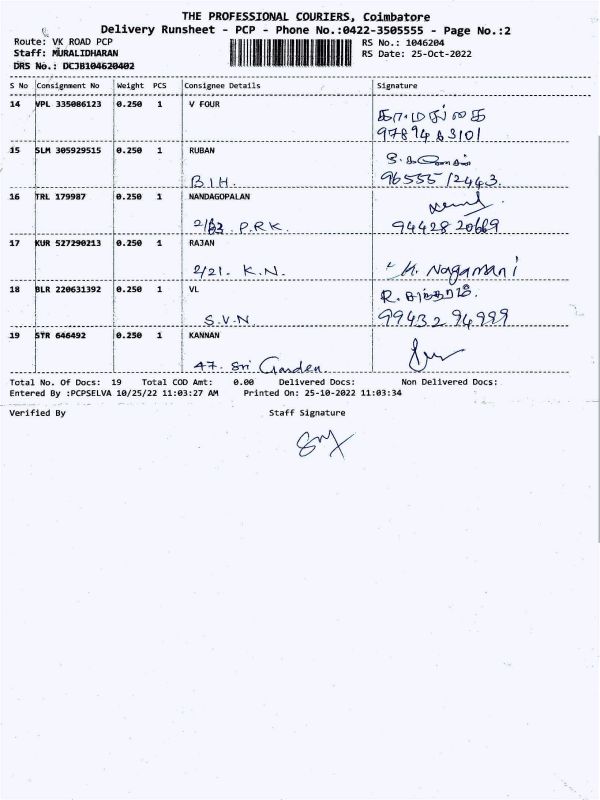 THE PROFESSIONAL COURIERS, Coimbatore
Delivery Runsheet - PCP - Phone No.:0422-3505555 - Page No.:2
Route: VK ROAD PCP RS No.: 1046204
Staff: MURALIDHARAN RS Date: 25-Oct-2022
DRS No.: DCJB104620402
S No Consignment No Weight PCS Consignee Details Signature
14 VPL 335086123 0.250 1 V FOUR
15 SLM 305929515 0.250 1 RUBAN
B.I.H.
16 TRL 179987 0.250 1 NANDAGOPALAN
P.R.K. 94428 20669
17 KUR 527290213 0.250 1 RAJAN
2/21. K.N. H. Nagamani
18 BLR 220631392 0.250 1 VL
S.V.N. 99432 94999
19 STR 646492 0.250 1 KANNAN
47. Sri Garden
Total No. Of Docs: 19 Total COD Amt: 0.00 Delivered Docs: Non Delivered Docs:
Entered By :PCPSELVA 10/25/22 11:03:27 AM Printed On: 25-10-2022 11:03:34
Verified By Staff Signature